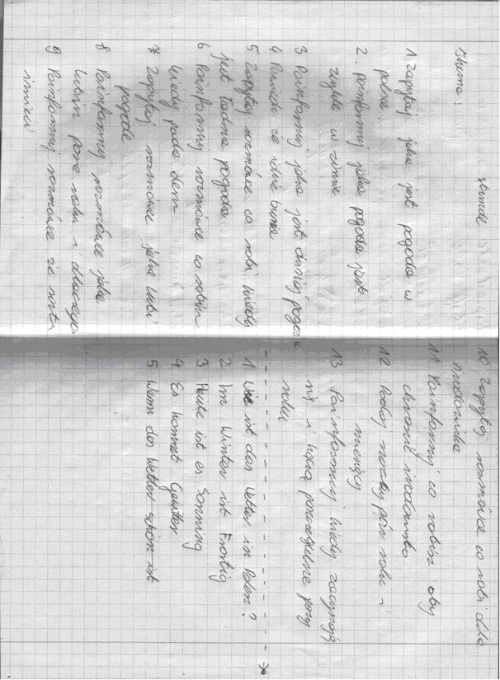 Thema: Stunde
1 Zapytaj jaka jest pogoda w
polsce
2. poinformuj jaka pogoda jest
zwykle w zimie
3 Poinformuj jaka jest dzisiaj pogoda
4 Powiedz że idzie burza
5 Zapytaj rozmówcę co robi kiedy
jest ładna pogoda
6 Poinformuj rozmówcę co robisz
kiedy pada deszcz
7 Zapytaj rozmówcę jaką lubi
pogodę
8 Poinformuj rozmówcę jaką
lubisz porę roku i dlaczego
9 Poinformuj rozmówcę że
10 Zapytaj rozmówcę co robi dla
środowiska
11 Poinformuj co robisz aby
chronić środowisko
12 Podaj nazwy pór roku i
miesięcy
13 Poinformuj kiedy zaczynają
się i kończą poszczególne pory
roku
1 Wie ist das Wetter in Polen?
2 Im Winter ist Frostig
3 Heute ist es Sonning
4 Es kommet Gewitter
5 Wenn das Wetter schön ist